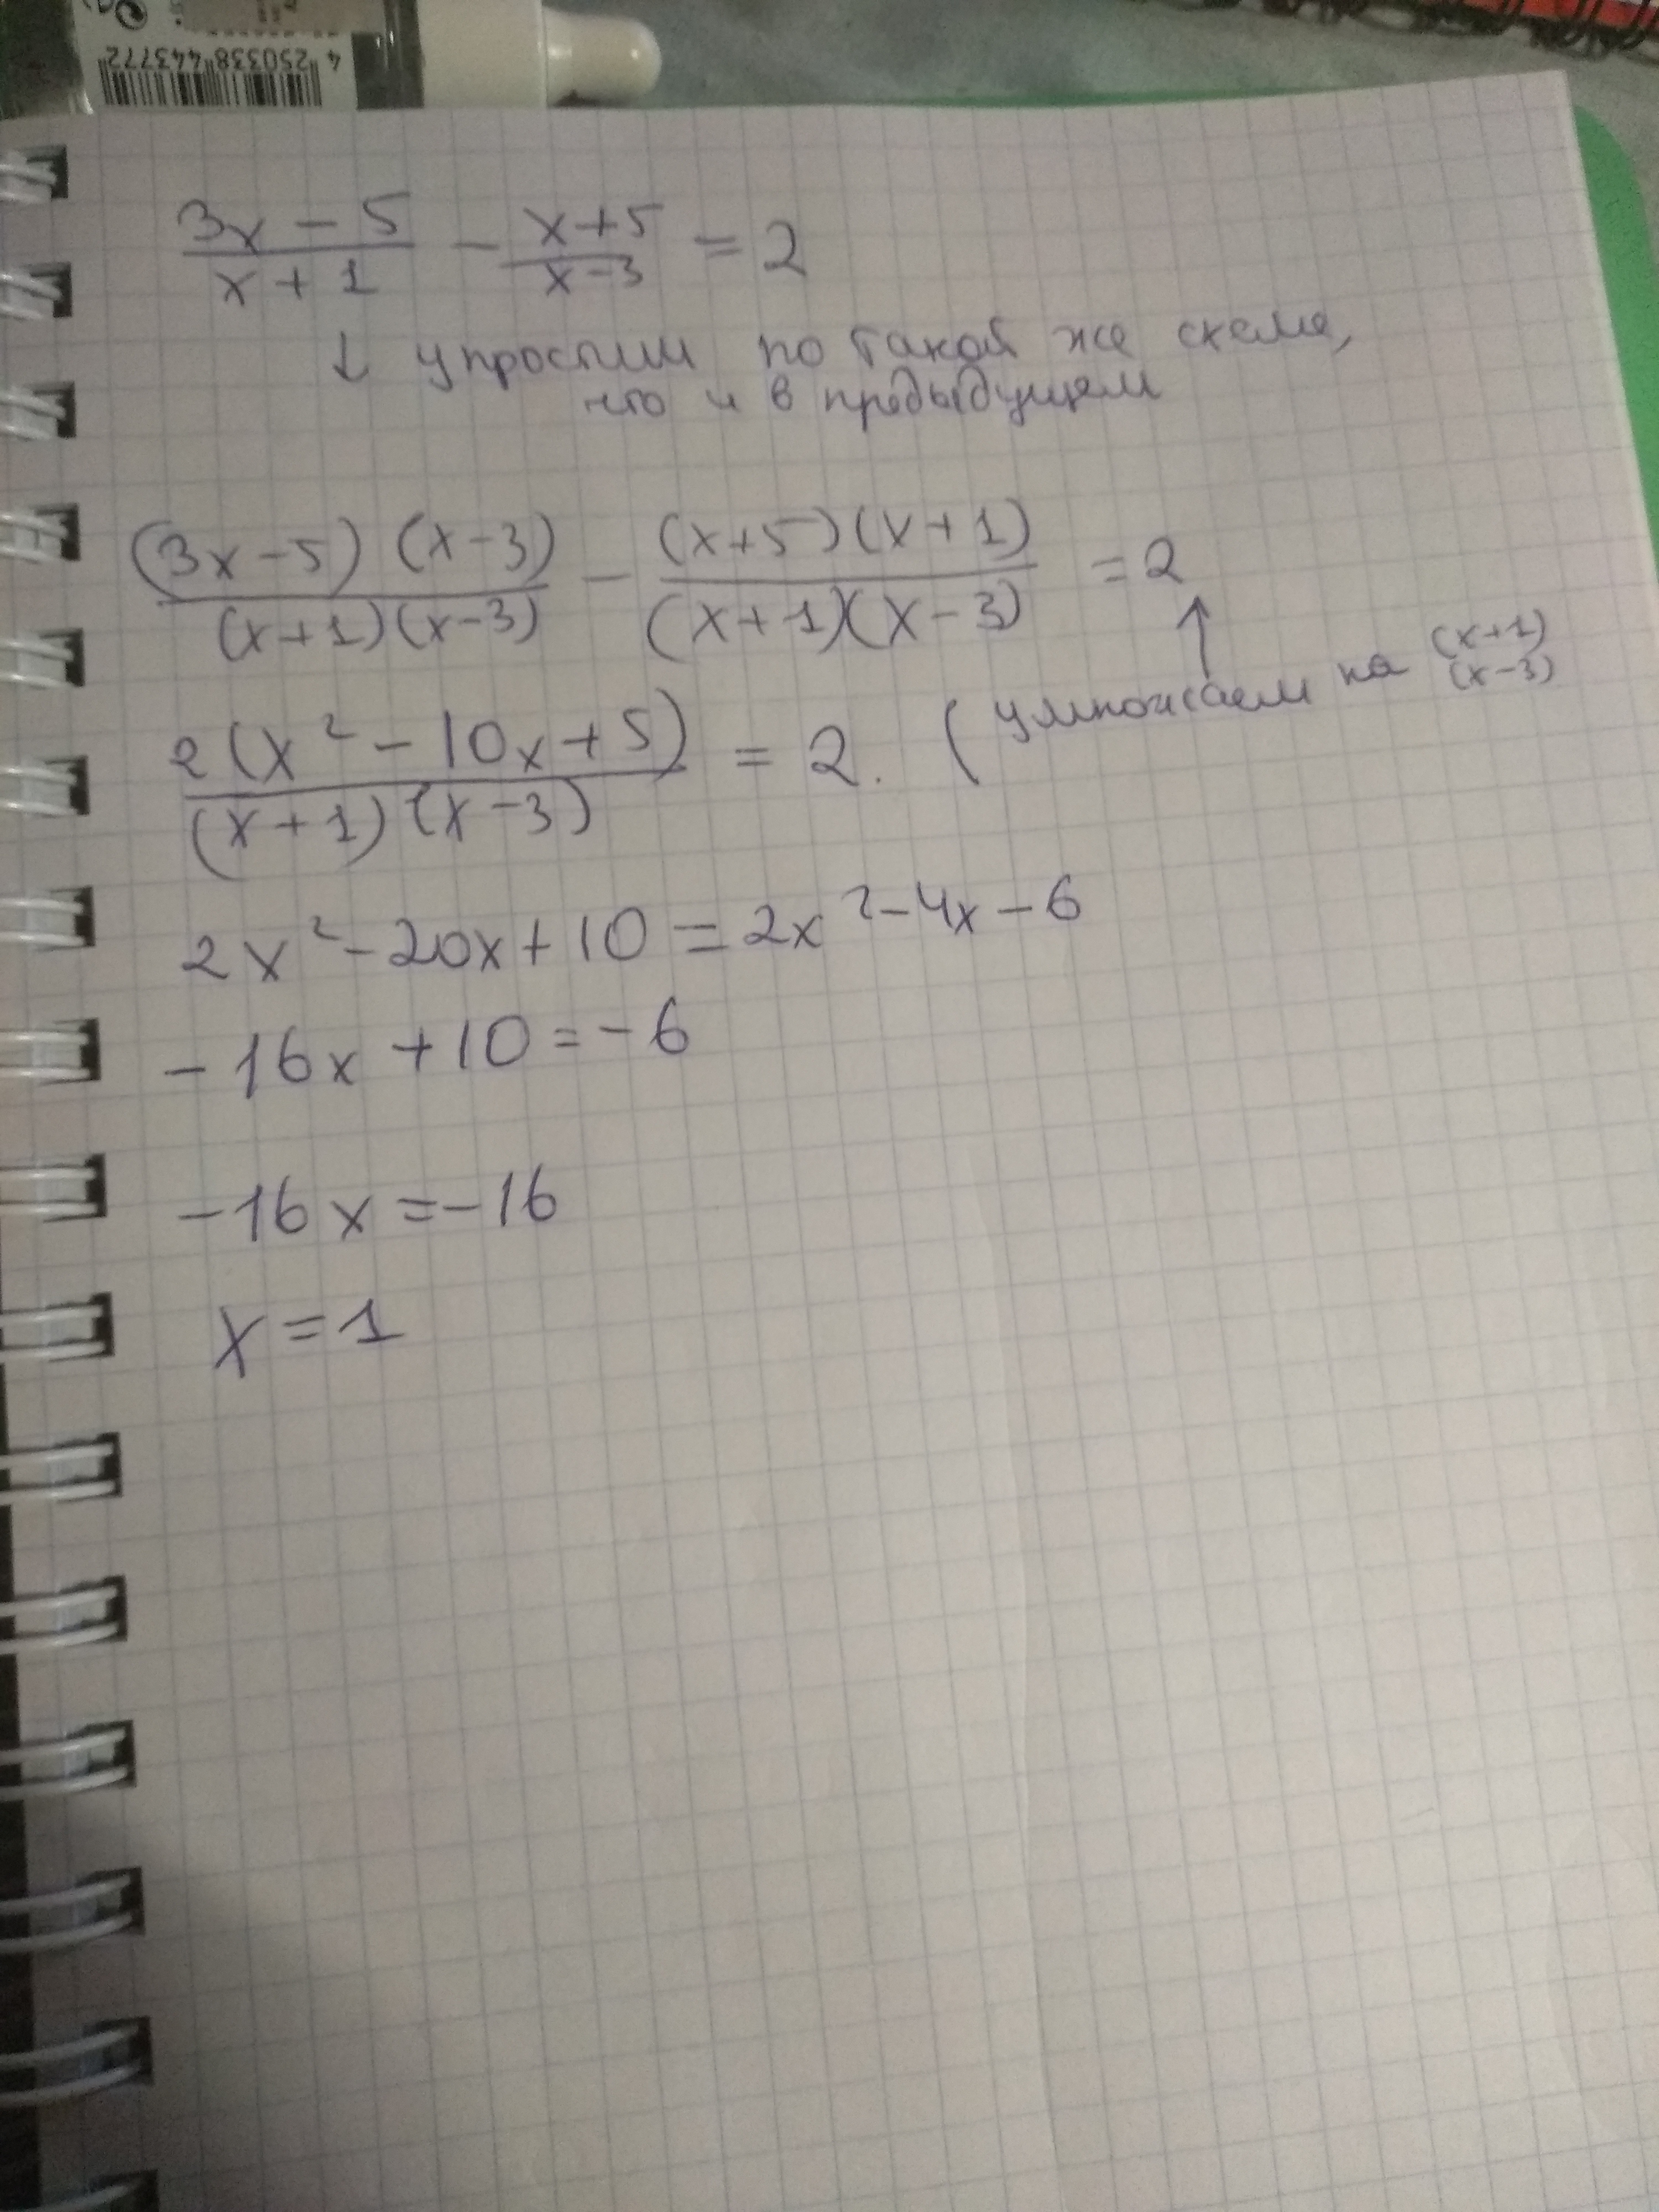 4 250338 443772
3x - 5 / x + 1 - x+5 / x-3 = 2
↓ упростим по такой же схеме,
что и в предыдущем
(3x-5)(x-3) / (x+1)(x-3) - (x+5)(x+1) / (x+1)(x-3) = 2
↑
(умножаем на (x+1)
(x-3)
2(x² - 10x + 5) / (x+1)(x-3) = 2.
2x² - 20x + 10 = 2x² - 4x - 6
- 16x + 10 = - 6
-16x = -16
x = 1